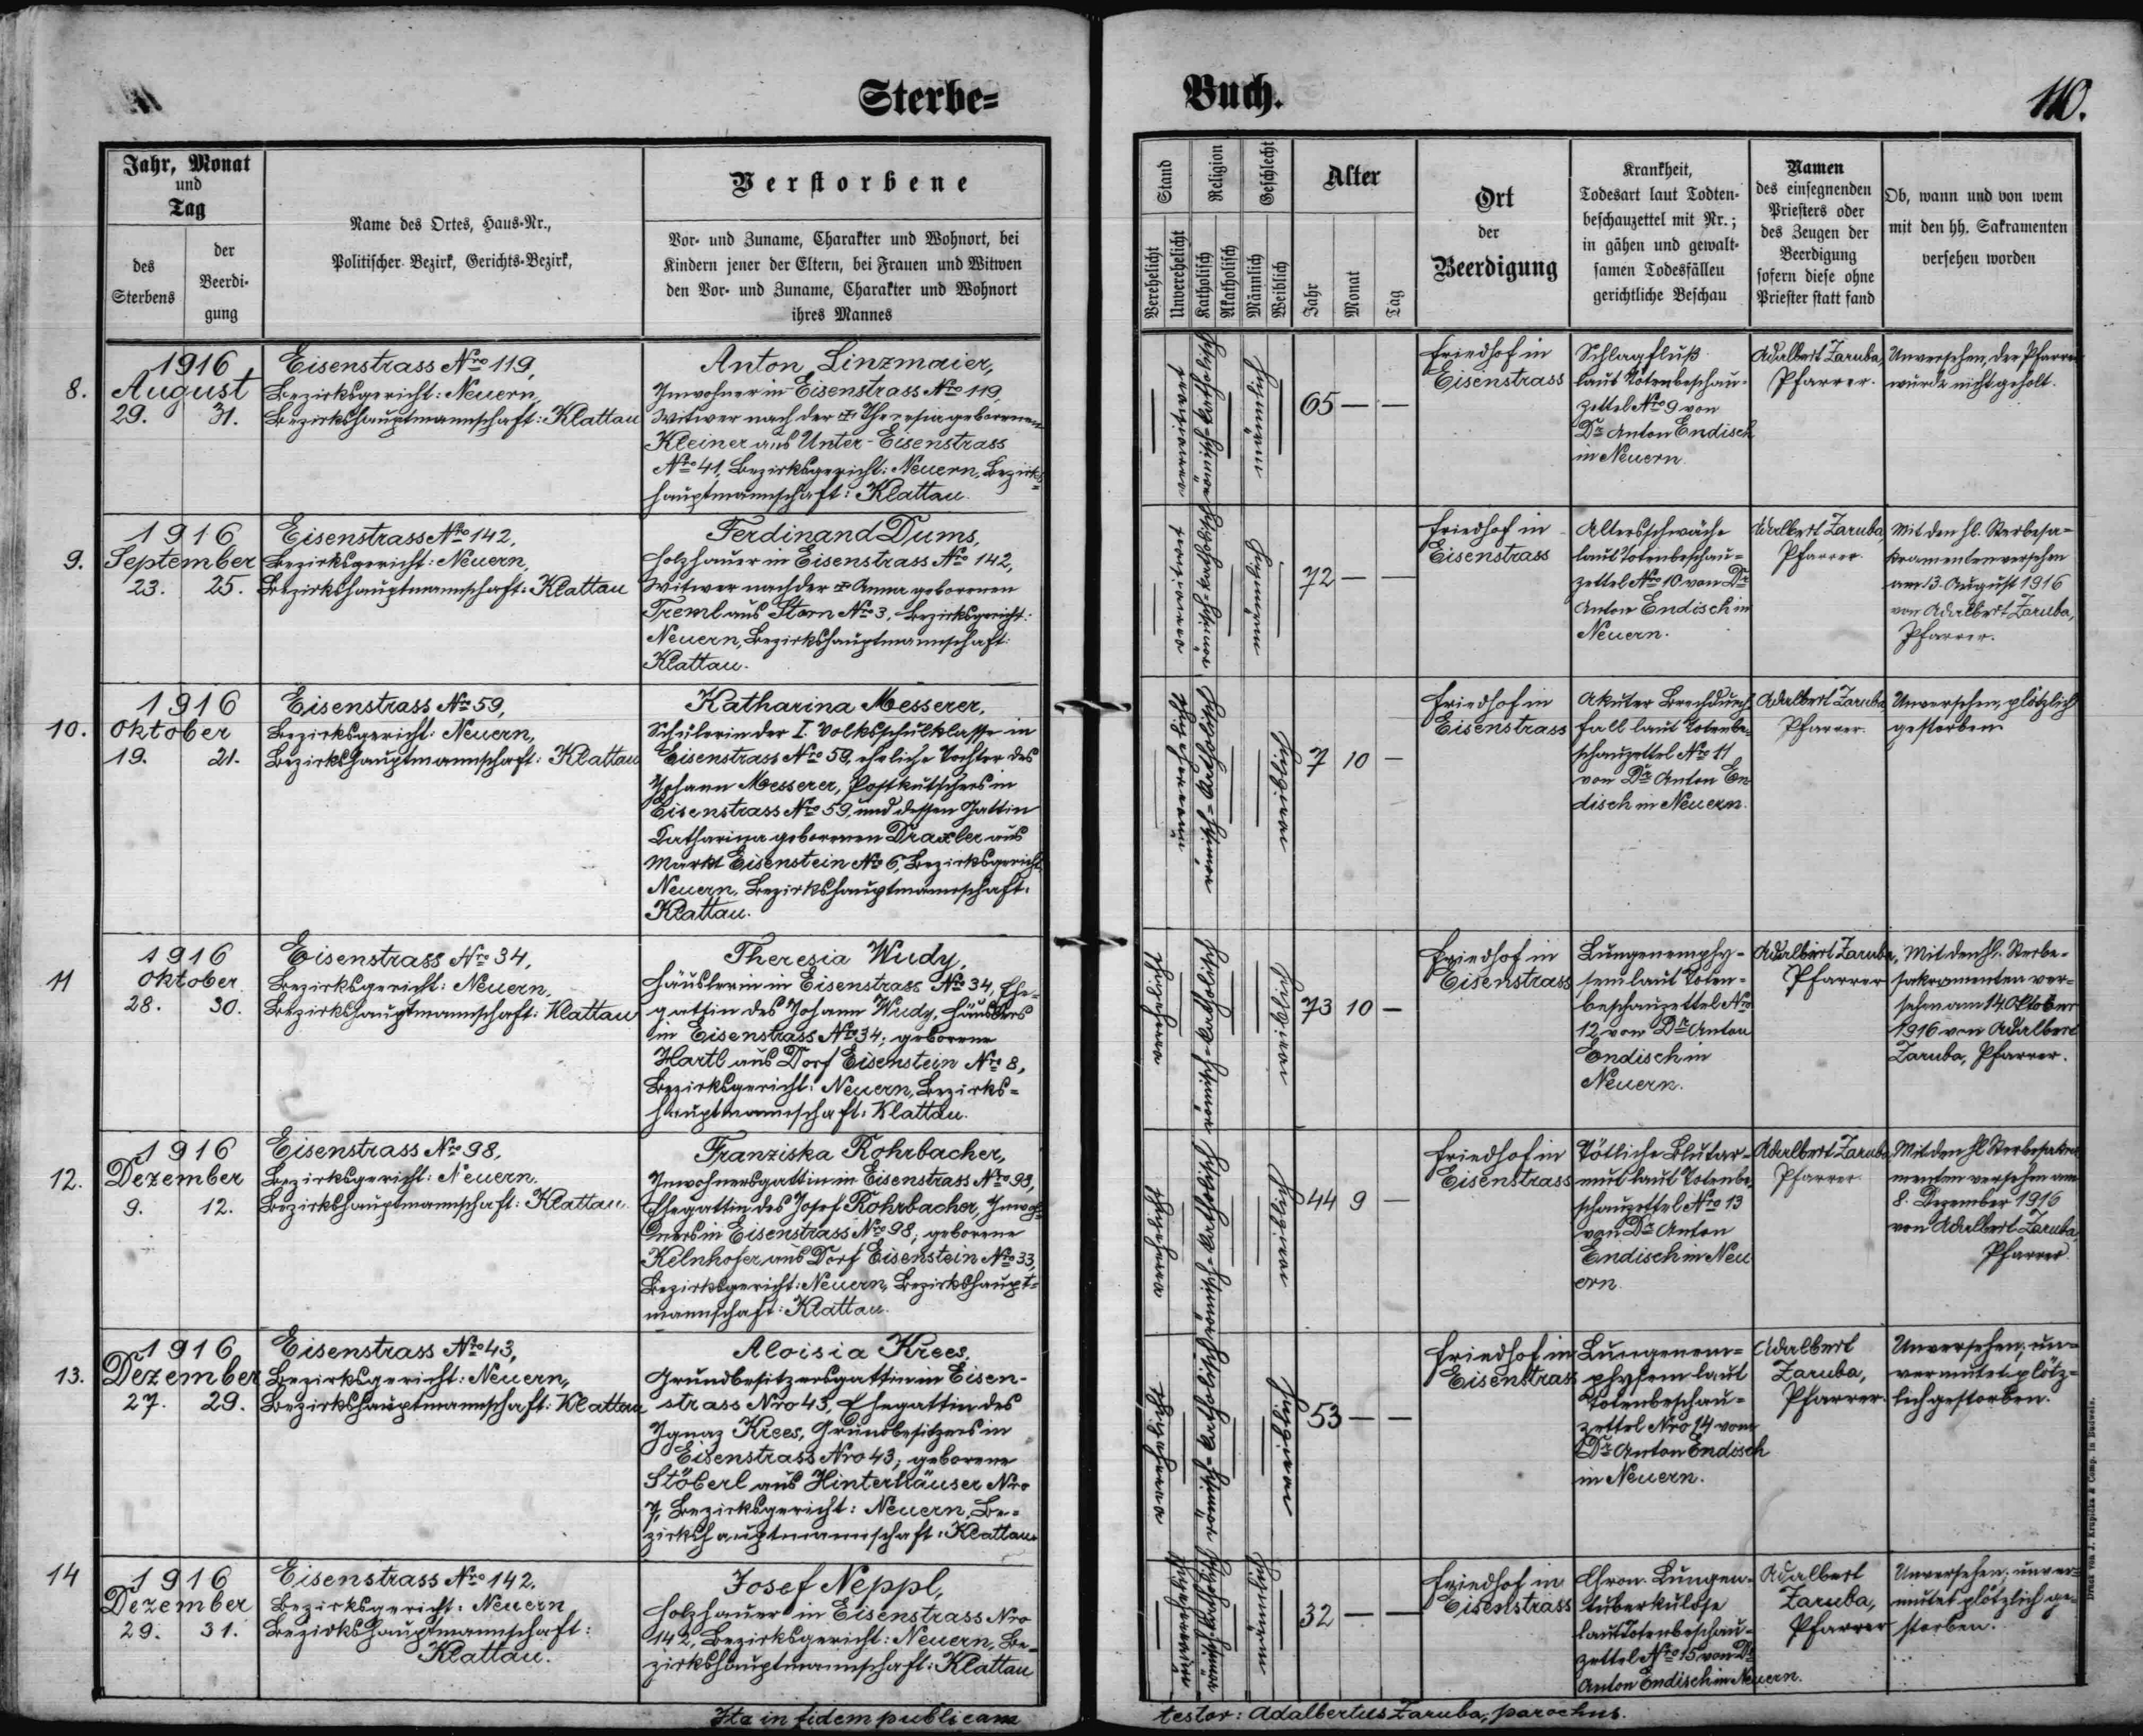 Sterbe=
Buch.
110.
Jahr, Monat
und
Tag
des
Sterbens
der
Beerdi-
gung
Name des Ortes, Haus-Nr.,
Politischer Bezirk, Gerichts-Bezirk,
Verstorbene
Vor- und Zuname, Charakter und Wohnort, bei
Kindern jener der Eltern, bei Frauen und Witwen
den Vor- und Zuname, Charakter und Wohnort
ihres Mannes
Stand
Verehelicht
Unverehelicht
Religion
Katholisch
Akatholisch
Geschlecht
Männlich
Weiblich
Alter
Jahr
Monat
Tag
Ort
der
Beerdigung
Krankheit,
Todesart laut Todten-
beschauzettel mit Nr.;
in gähen und gewalt-
samen Todesfällen
gerichtliche Beschau
Namen
des einsegnenden
Priesters oder
des Zeugen der
Beerdigung
sofern diese ohne
Priester statt fand
Ob, wann und von wem
mit den hh. Sakramenten
versehen worden
8.
1916
August
29. 31.
Eisenstrass Nro 119,
Bezirksgericht: Neuern,
Bezirkshauptmannschaft: Klattau
Anton Linzmaier,
Inwohner in Eisenstrass Nro 119,
Witwer nach der + Theresia geborenen
Kleiner aus Unter-Eisenstrass
Nro 41, Bezirksgericht: Neuern, Bezirks=
hauptmannschaft: Klattau.
verwitwet
römisch=katholisch
männlich
65 — —
Friedhof in
Eisenstrass
Schlagfluß
laut Totenbeschau-
zettel Nro 9 von
Dr Anton Endisch
in Neuern
Adalbert Zaruba,
Pfarrer.
Unversehen, der Pfarrer
wurde nicht geholt.
9.
1916
September
23. 25.
Eisenstrass Nro 142,
Bezirksgericht: Neuern,
Bezirkshauptmannschaft: Klattau
Ferdinand Dums,
Holzhauer in Eisenstrass Nro 142,
Witwer nach der + Anna geborenen
Treml aus Storn Nro 3, Bezirksgericht:
Neuern, Bezirkshauptmannschaft:
Klattau.
verwitwet
römisch=katholisch
männlich
72 — —
Friedhof in
Eisenstrass
Altersschwäche
laut Totenbeschau=
zettel Nro 10 von Dr
Anton Endisch in
Neuern.
Adalbert Zaruba,
Pfarrer.
Mit den hl. Sterbesa=
kramenten versehen
am 13. August 1916
von Adalbert Zaruba,
Pfarrer.
10.
1916
Oktober
19. 21.
Eisenstrass Nro 59,
Bezirksgericht: Neuern,
Bezirkshauptmannschaft: Klattau
Katharina Messerer,
Schülerin der I. Volksschulklasse in
Eisenstrass Nro 59, eheliche Tochter des
Johann Messerer, Postkutschers in
Eisenstrass Nro 59, und dessen Gattin
Katharina geborenen Draxler aus
Markt Eisenstein Nro 6, Bezirksgericht:
Neuern, Bezirkshauptmannschaft:
Klattau.
unverehelicht
römisch=katholisch
weiblich
7 10 —
Friedhof in
Eisenstrass
Akuter Brechdurch
fall laut Totenbe-
schauzettel Nro 11
von Dr Anton En
disch in Neuern.
Adalbert Zaruba
Pfarrer.
Unversehen, plötzlich
gestorben.
11
1916
Oktober
28. 30.
Eisenstrass Nro 34,
Bezirksgericht: Neuern,
Bezirkshauptmannschaft: Klattau
Theresia Wudy,
Häuslerin in Eisenstrass Nro 34, Ehe-
gattin des Johann Wudy, Häuslers
in Eisenstrass Nro 34; geborene
Hartl aus Dorf Eisenstein Nro 8,
Bezirksgericht: Neuern, Bezirks=
hauptmannschaft: Klattau.
verehelicht
römisch=katholisch
weiblich
73 10 —
Friedhof in
Eisenstrass
Lungenemphy-
sem laut Toten-
beschauzettel Nro
12 von Dr Anton
Endisch in
Neuern.
Adalbert Zaruba,
Pfarrer
Mit den hl. Sterbe-
sakramenten ver=
sehen am 14. Oktober
1916 von Adalbert
Zaruba, Pfarrer.
12.
1916
Dezember
9. 12.
Eisenstrass Nro 98,
Bezirksgericht: Neuern.
Bezirkshauptmannschaft: Klattau.
Franziska Rohrbacher,
Inwohnersgattin in Eisenstrass Nro 98,
Ehegattin des Josef Rohrbacher, Inwoh=
ners in Eisenstrass Nro 98; geborene
Kelnhofer aus Dorf Eisenstein Nro 33,
Bezirksgericht: Neuern, Bezirkshaupt=
mannschaft: Klattau.
verehelicht
römisch=katholisch
weiblich
44 9 —
Friedhof in
Eisenstrass
Tötliche Blutar-
mut laut Totenbe-
schauzettel Nro 13
von Dr Anton
Endisch in Neu
ern.
Adalbert Zaruba
Pfarrer
Mit den hl Sterbesakra
menten versehen am
8. Dezember 1916
von Adalbert Zaruba,
Pfarrer.
13.
1916
Dezember
27. 29.
Eisenstrass Nro 43,
Bezirksgericht: Neuern,
Bezirkshauptmannschaft: Klattau
Aloisia Krees,
Grundbesitzersgattin in Eisen-
strass Nro 43, Ehegattin des
Ignaz Krees, Grundbesitzers in
Eisenstrass Nro 43; geborene
Stöberl aus Hinterhäuser Nro
7, Bezirksgericht: Neuern, Be=
zirkshauptmannschaft: Klattau.
verehelicht
römisch=katholisch
weiblich
53 — —
Friedhof in
Eisenstrass
Lungenem=
physem laut
Totenbeschau=
zettel Nro 14 vom
Dr Anton Endisch
in Neuern.
Adalbert
Zaruba,
Pfarrer.
Unversehen; un=
vermutet plötz=
lich gestorben.
14
1916
Dezember
29. 31.
Eisenstrass Nro 142.
Bezirksgericht: Neuern
Bezirkshauptmannschaft:
Klattau.
Josef Neppl,
Holzhauer in Eisenstrass Nro
142, Bezirksgericht: Neuern, Be=
zirkshauptmannschaft: Klattau
unverehelicht
römisch=katholisch
männlich
32 — —
Friedhof in
Eisenstrass
Chron. Lungen=
tuberkulose
laut Totenbeschau=
zettel Nro 15 von Dr
Anton Endisch in Neuern.
Adalbert
Zaruba,
Pfarrer
Unversehen; unver=
mutet plötzlich ge=
storben.
Ita in fidem publicam
testor: Adalbertus Zaruba, parochus.
Druck von J. Krupička & Comp. in Budweis.